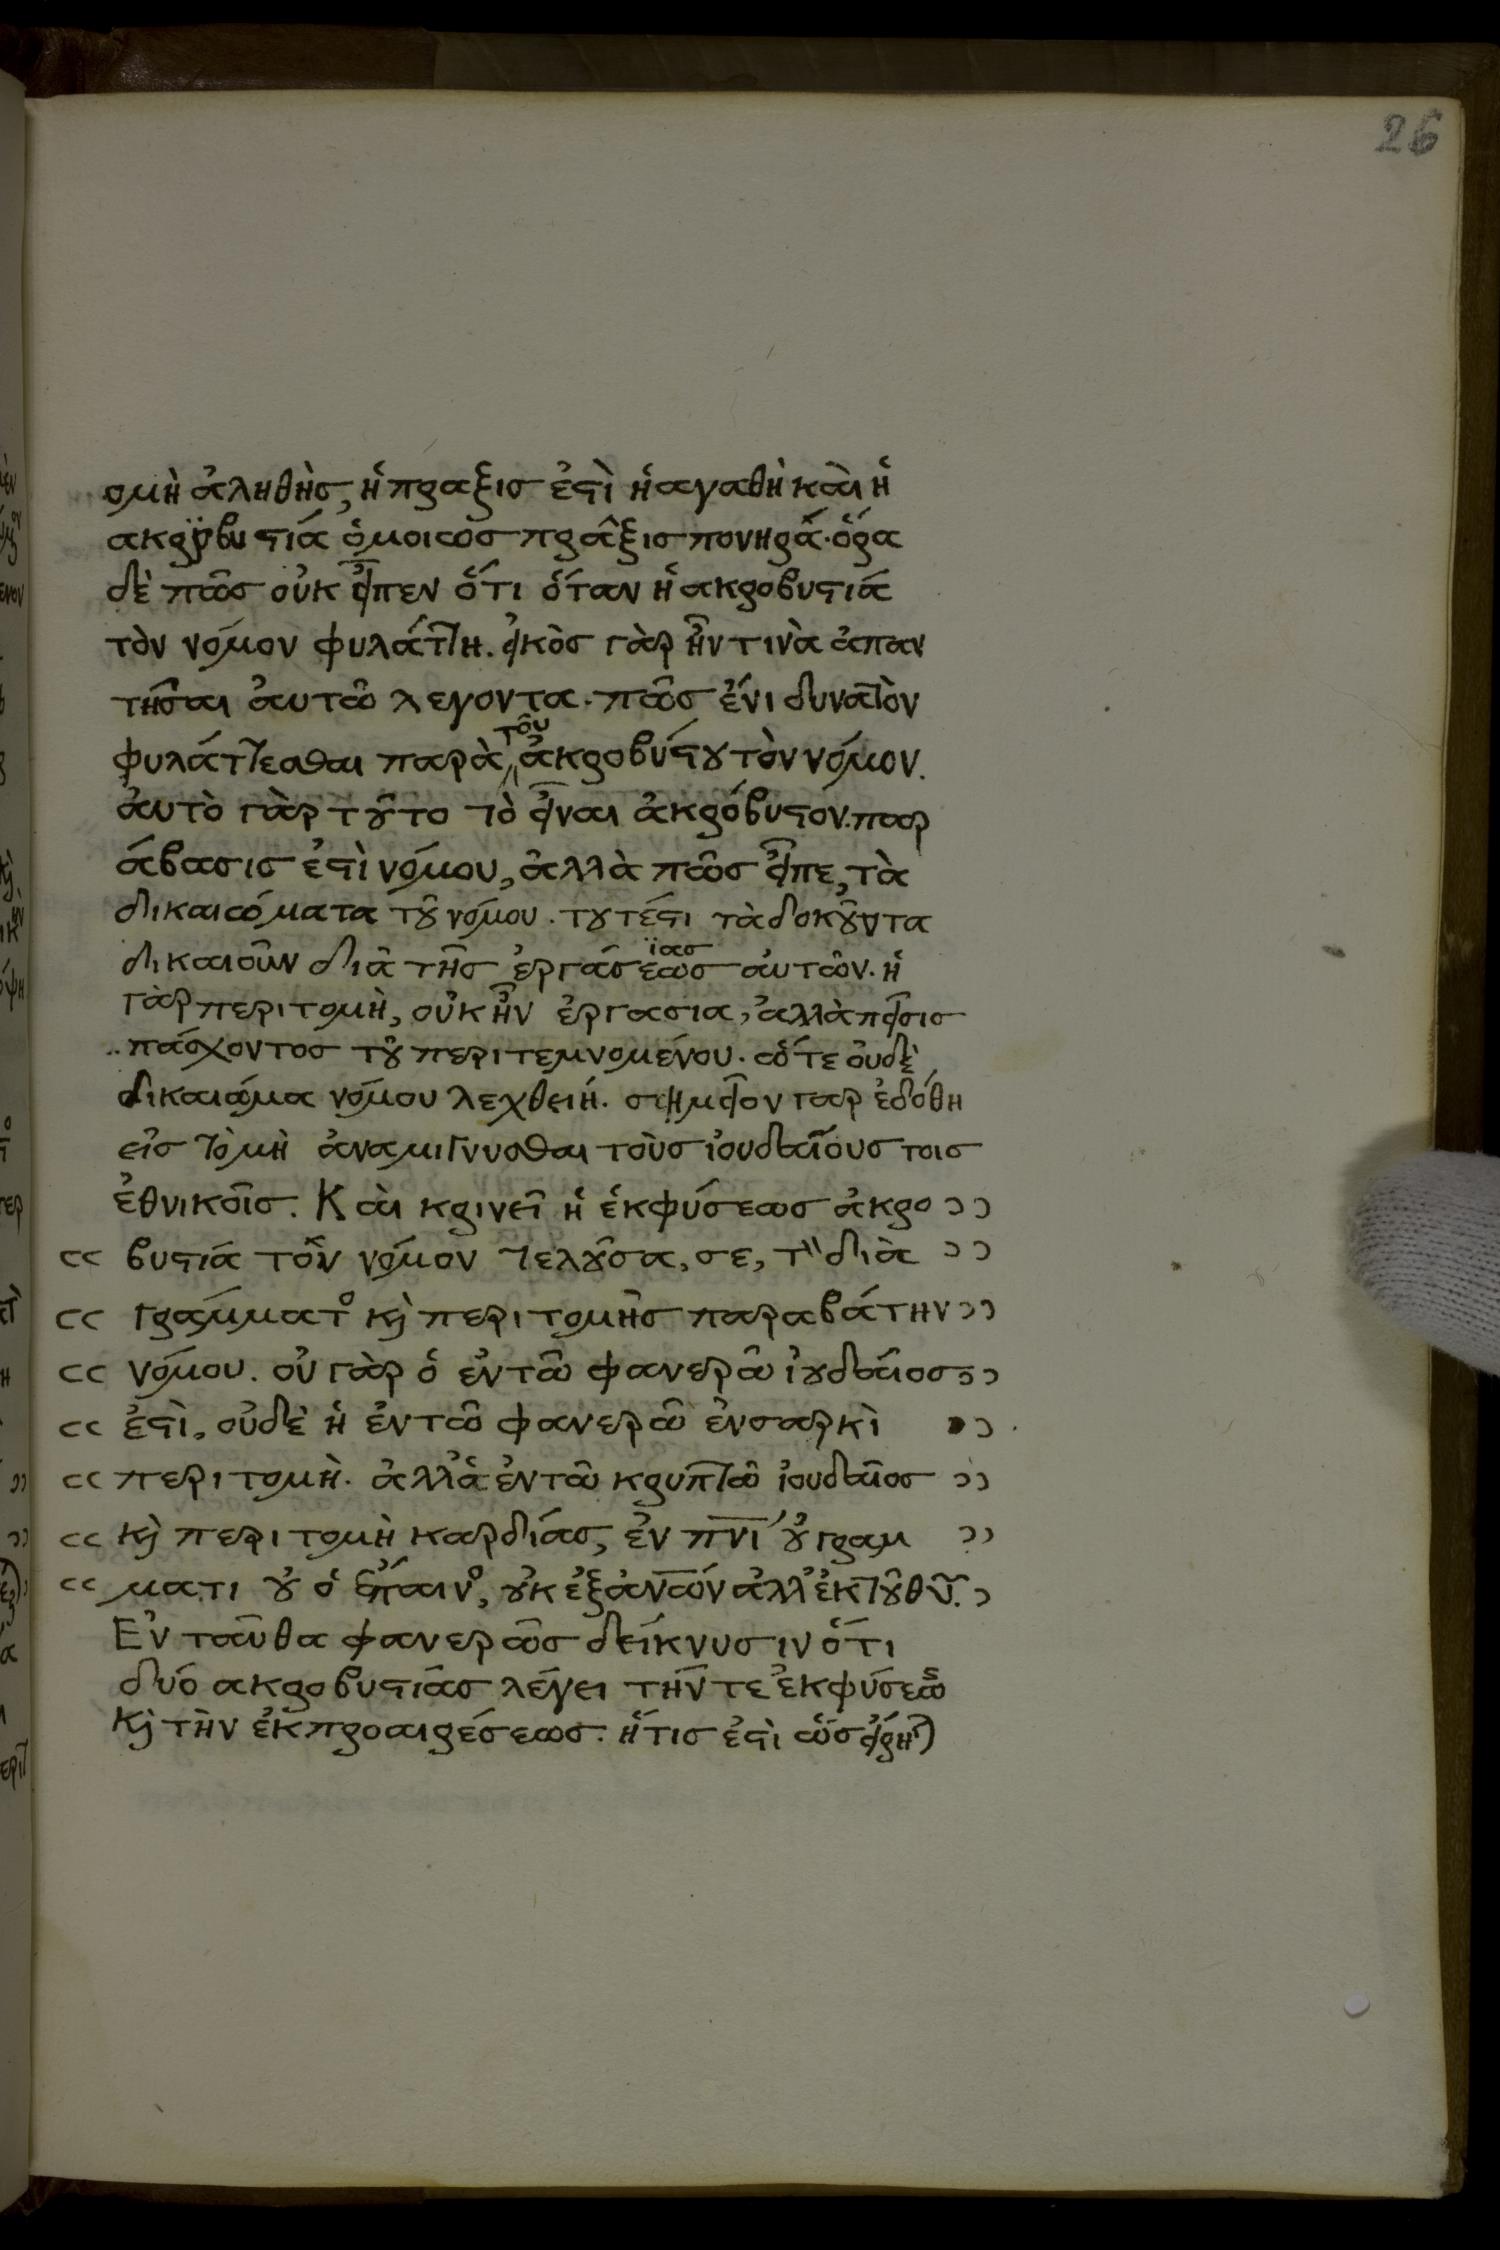 26
ομὴ ἀληθὴσ, ἡ πραξισ ἐστὶ ἡ αγαθὴ καὶ ἡ
ακροβυστιά ὁμοιωσ πρᾶξισ πονηρά. ὅρα
δὲ πῶσ οὐκ εἶπεν ὅτι ὅταν ἡ ακροβυστιά
τὸν νόμον φυλάττη. εἰκὸσ γὰρ ἦν τινὰ ἀπαν
τῆσαι ἀυτῶ λεγοντα. πῶσ ἔνι δυνατὸν
φυλάττεσθαι παρὰ τοῦ ἀκροβύστου τὸν νόμον.
ἀυτὸ γὰρ τοῦτο τὸ εἶναι ἀκρόβυστον. παρ
άβασισ ἐστὶ νόμου, ἀλλὰ πῶσ εἶπε, τὰ
δικαιώματα τοῦ νόμου. τουτέστι τὰ δοκοῦντα
δικαιοῦν διὰ τῆσ ἐργάσεωσ ϊασ αὐτῶν. ἡ
γὰρ περιτομὴ, οὐκ ἦν ἐργασια, ἀλλὰ πεῖσισ
πάσχοντοσ τοῦ περιτεμνομένου. ὥστε οὐδὲ
δικαιώμα νόμου λεχθειή. σημεῖον γαρ ἐδόθη
εἰσ τὸ μὴ ἀναμιγνυσθαι τοὺσ ἰουδαίουσ τοισ
ἐθνικοῖσ. Καὶ κρινεῖ ἡ ἐκφύσεωσ ἀκρο ))
(( βυστιά τὸν νόμον τελοῦσα, σε, τὸν διὰ ))
(( γράμματος κὴ περιτομῆσ παραβάτην ))
(( νόμου. οὐ γὰρ ὁ ἐν τῶ φανερῶ ἰουδαῖοσ ))
(( ἐστὶ, οὐδὲ ἡ ἐν τῶ φανερῶ ἐν σαρκὶ ))
(( περιτομὴ. ἀλλὰ ἐν τῶ κρυπτῶ ἰουδαῖοσ ))
(( κὴ περιτομὴ καρδίασ, ἐν πνι οὐ γραμ ))
(( ματι οὗ ὁ ἔπαινος, οὐκ ἐξ ἀνων ἀλλ ἐκ τοῦ θυ. )
Ἐν ταῦθα φανερῶσ δείκνυσιν ὅτι
δυό ακροβυστίασ λέγει τήν τε ἐκφύσεως
κὴ τὴν ἐκπροαιρέσεωσ. ἥτισ ἐστὶ ὡσ εἴρηται